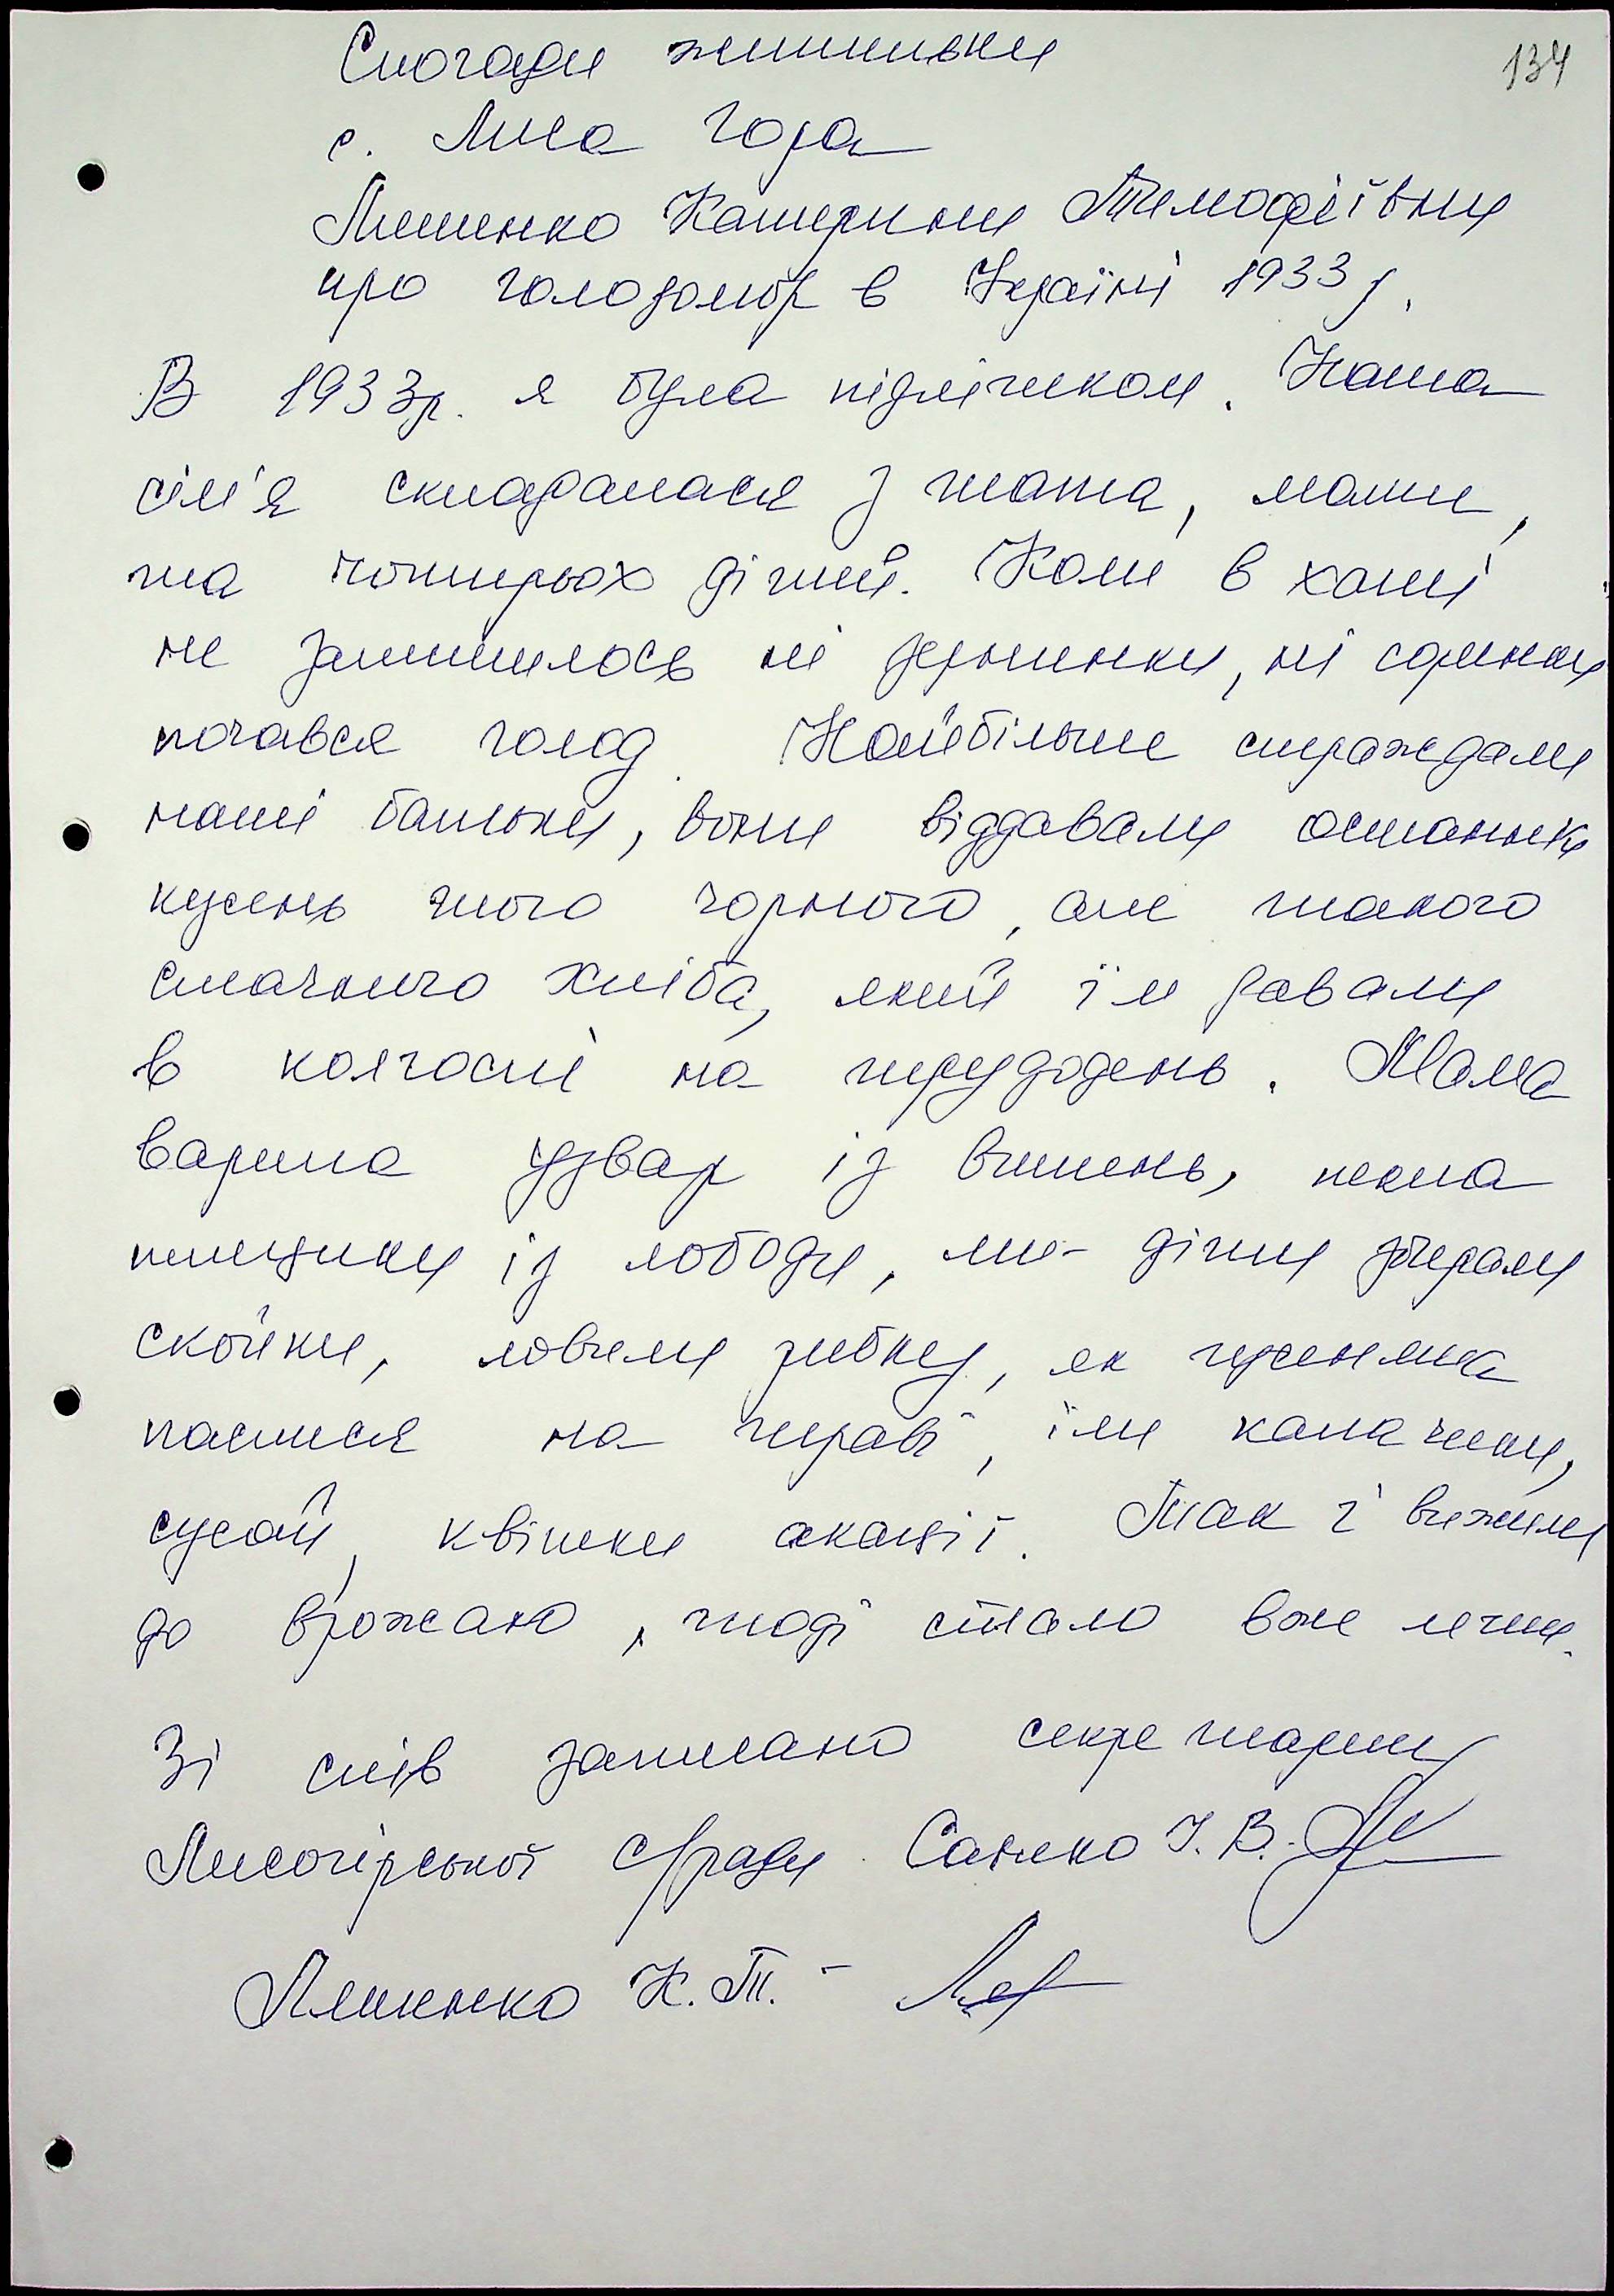 134
Спогади жительки
с. Лиса Гора
Ляшенко Катерини Тимофіївни
про голодомор в Україні 1933 р.
В 1933р. я була підлітком. Наша
сім'я складалася з тата, мами,
та чотирьох дітей. Коли в хаті
не залишилось ні зернинки, ні соринки
почався голод. Найбільше страждали
наші батьки, вони віддавали останній
кусень того чорного, але такого
смачного хліба, який їм давали
в колгоспі на трудодень. Мама
варила узвар із вишень, пекла
пляцики із лободи, ми - діти збирали
скойки, ловили рибку, як гусенята
паслися на траві, їли калачики,
сусай, квітки акації. Так і вижили
до врожаю, тоді стало вже легше.
Зі слів записано секретарем
Лисогірської с/ради Саєнко І. В.
Ляшенко К. Т. -